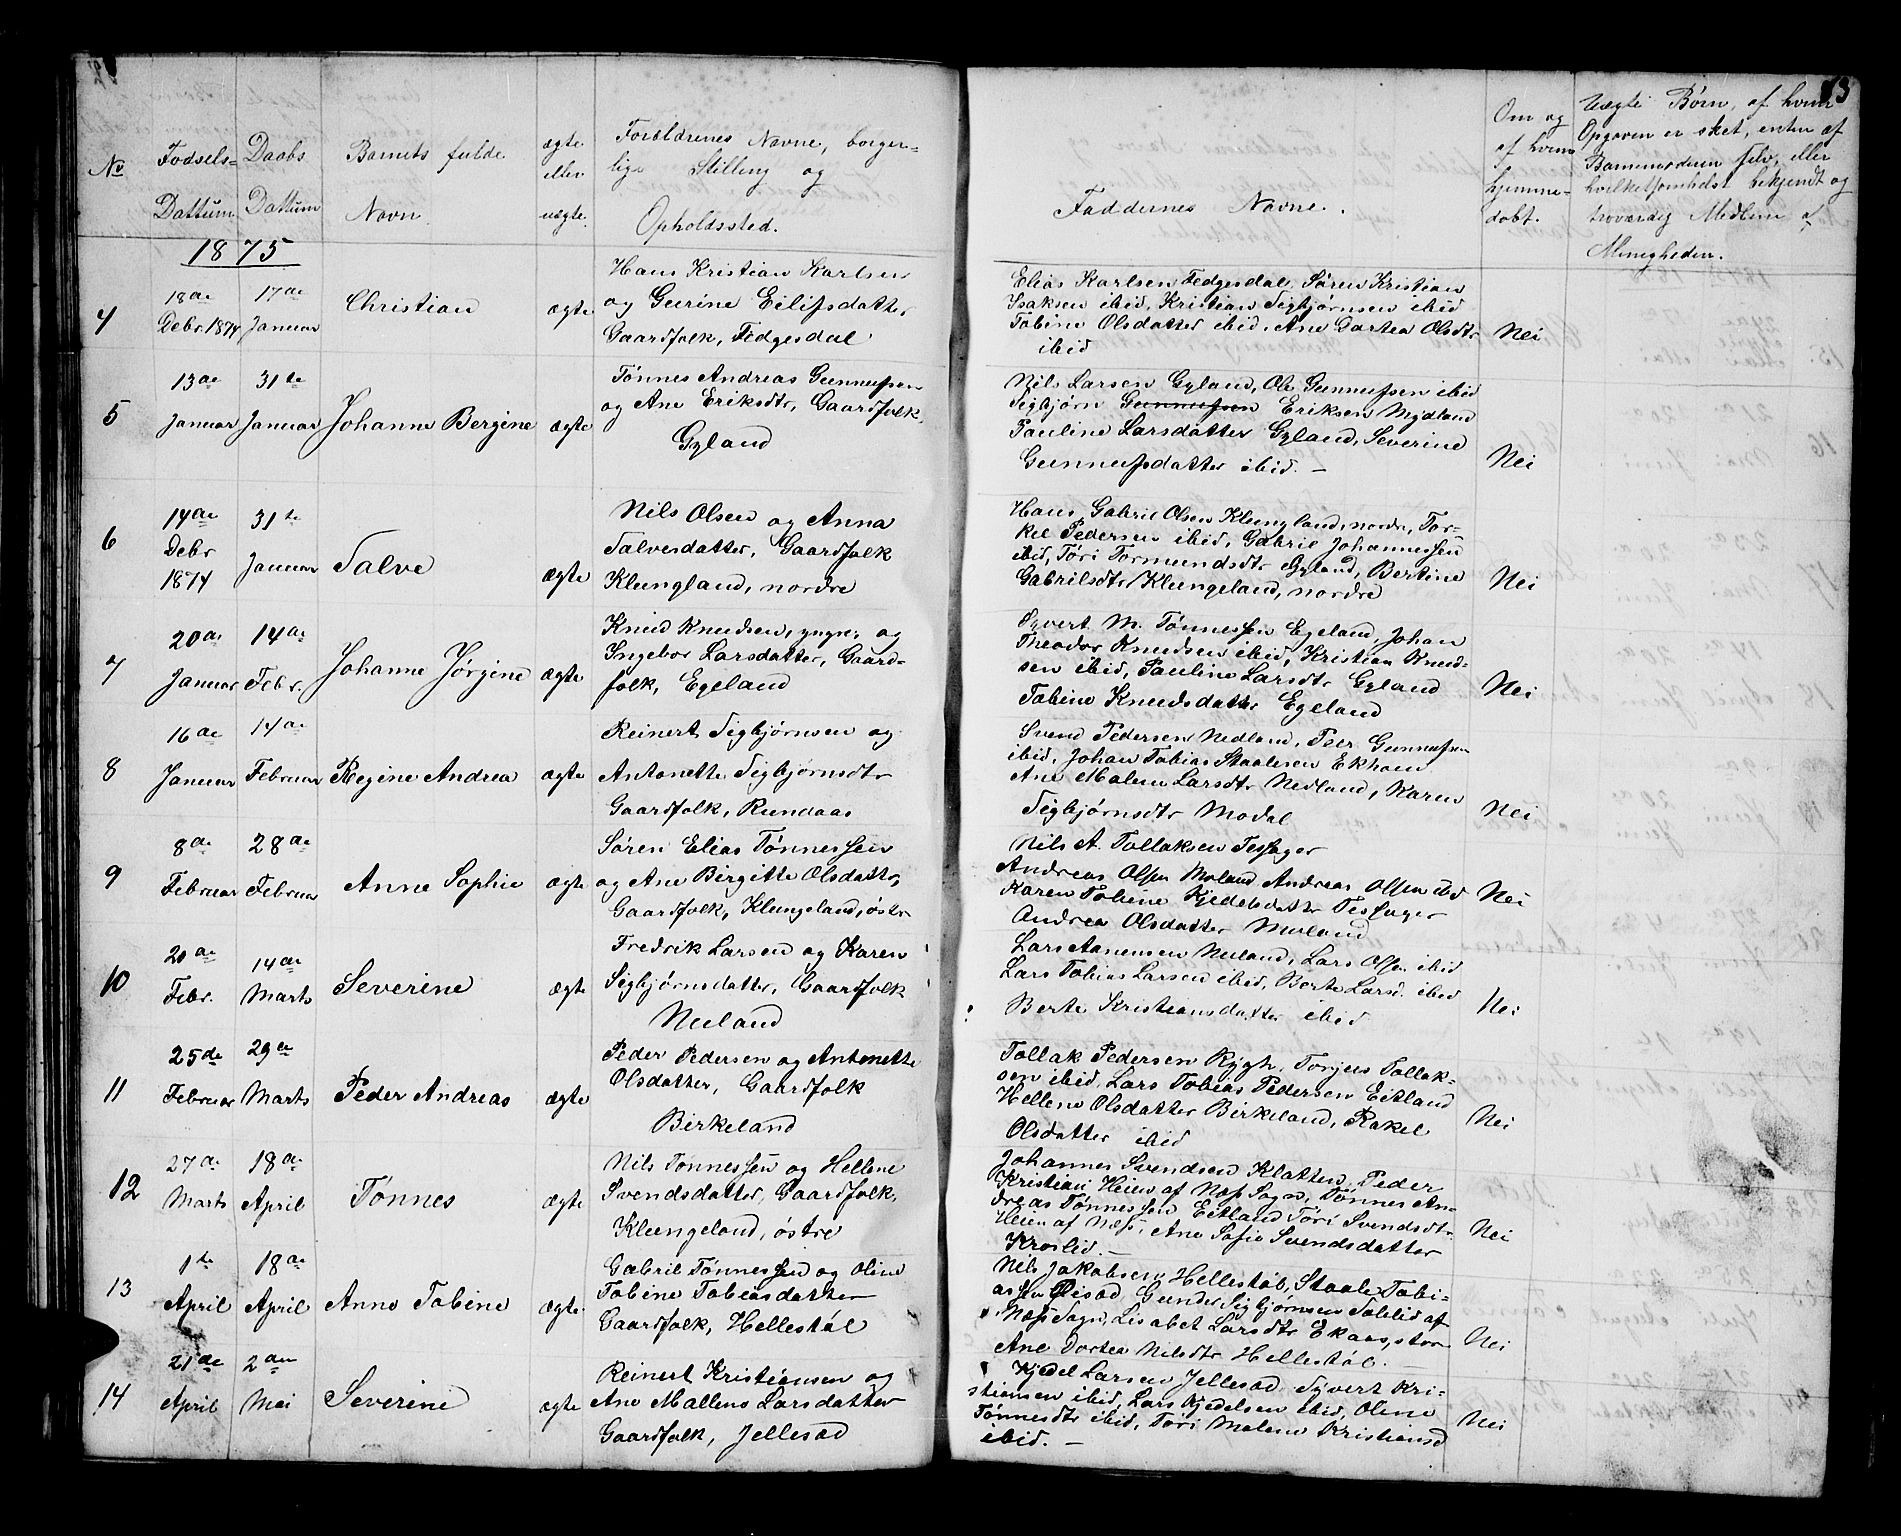 13
No
Fødsels=
Dattum
Daabs
Dattum
Barnets fulde
Navn
ægte
eller
uægte.
Forældrenes Navne, borger-
lige Stilling og
Opholdssted.
Faddernes Navne.
Om og
af hvem
hjemme-
døbt.
Uægte Børn, af hvem
Opgaven er sket, enten af
Barnemoderen selv, eller
hvilketsomhelst bekjendt og
troværdig Medlem af
Menigheden.
1875
4
18de
Debr 1874
17de
Januar
Christian
ægte
Hans Kristian Karlsen
og Gurine Eilifsdatter
Gaardfolk, Fedgesdal
Elias Karlsen Fedgesdal, Sören Kristian
Isaksen ibid, Kristian Sigbjørnsen ibid
Tobine Olsdatter ibid, Ane Dortea Olsdtr
ibid
Nei
5
13de
Januar
31te
Januar
Johanne Bergine
ægte
Tønnes Andreas Gunnufsen
og Ane Eriksdtr, Gaardfolk,
Gyland
Nils Larsen Gyland, Ole Gunnufsen ibid
Sigbjørn Gunnufsen Eriksen Mydland
Pauline Larsdatter Gyland, Severine
Gunnufsdatter ibid. —
Nei
6
14de
Debr
1874
31te
Januar
Salve
ægte
Nils Olsen og Anna
Salvesdatter, Gaardfolk
Klungland, nordre
Hans Gabriel Olsen Klungland, nordre, Tor-
kel Pedersen ibid, Gabriel Johannessen
ibid, Töri Tormundsdtr Gyland, Bertine
Gabrilsdtr Klungeland, nordre
Nei
7
20de
Januar
14de
Febr.
Johanne Jørgine
ægte
Knud Knudsen, yngre, og
Ingebor Larsdatter, Gaard-
folk, Egeland
Syvert M. Tönnessen Egeland, Johan
Theodor Knudsen ibid, Kristian Knud-
sen ibid, Pauline Larsdtr Gyland
Tobine Knudsdatter Egeland
Nei
8
16de
Januar
14de
Februar
Regine Andrea
ægte
Reinert Sigbjørnsen og
Antonette Sigbjørnsdtr
Gaardfolk, Rundaas
Svend Pedersen Nedland, Peer Gunnufsen
ibid, Johan Tobias Staalesen Ekhom
Ane Malene Larsdtr Nedland, Karen
Sigbjørnsdtr Modal
Nei
9
8de
Februar
28de
Februar
Anne Sophie
ægte
Søren Elias Tönnessen
og Ane Birgitte Olsdatter,
Gaardfolk, Klungeland, østr
Nils A. Tollaksen Tessager
Andreas Olsen Moland Andreas Olsen ibid
Karen Tobine Kjedelsdatter Tessager
Andrea Olsdatter Moland
Nei
10
20de
Febr.
14de
Marts
Severine
ægte
Fredrik Larsen og Karen
Sigbjørnsdatter, Gaardfolk
Nuland
Lars Aanensen Nuland, Lars Olsen ibid
Lars Tobias Larsen ibid, Berte Larsd. ibid
Berte Kristiansdatter ibid
Nei
11
25de
Februar
29de
Marts
Peder Andreas
ægte
Peder Pedersen og Antonette
Olsdatter, Gaardfolk
Birkeland
Tollak Pedersen Rygh, Torjus Tollak-
sen ibid, Lars Tobias Pedersen Eitland
Hellene Olsdatter Birkeland, Rakel
Olsdatter ibid
Nei
12
27de
Marts
18de
April
Tønnes
ægte
Nils Tönnessen og Hellene
Svendsdatter, Gaardfolk,
Klungeland, østre
Johannes Svendsen Klatten, Peder
Kristian Heien af Næs Sogn, Tönnes An-
dreas Tønnessen Eitland Töri Svendsdtr
Heien af Næs, Ane Sofie Svendsdatter
Kroslid. —
Nei
13
1te
April
18de
April
Anne Tobine
ægte
Gabriel Tønnessen og Oline
Tobine Tobiasdatter
Gaardfolk, Hellestøl
Nils Jakobsen Hellestøl, Staale Tobi-
assen Gunder Sigbjørnsen af
Næs Sogn, Lisabet Larsdtr Ekaas, stor
Ane Dortea Nilsdtr Hellestøl. —
Nei
14
21de
April
2den
Mai
Severine
ægte
Reinert Kristiansen og
Ane Mallene Larsdatter
Gaardfolk, Jellesad
Kjedel Larsen Jellesad, Syvert Kri-
stiansen ibid, Lars Kjedelsen ibid, Oline
Tønnesdtr ibid, Töri Malene Kristiansd
ibid. —
Nei